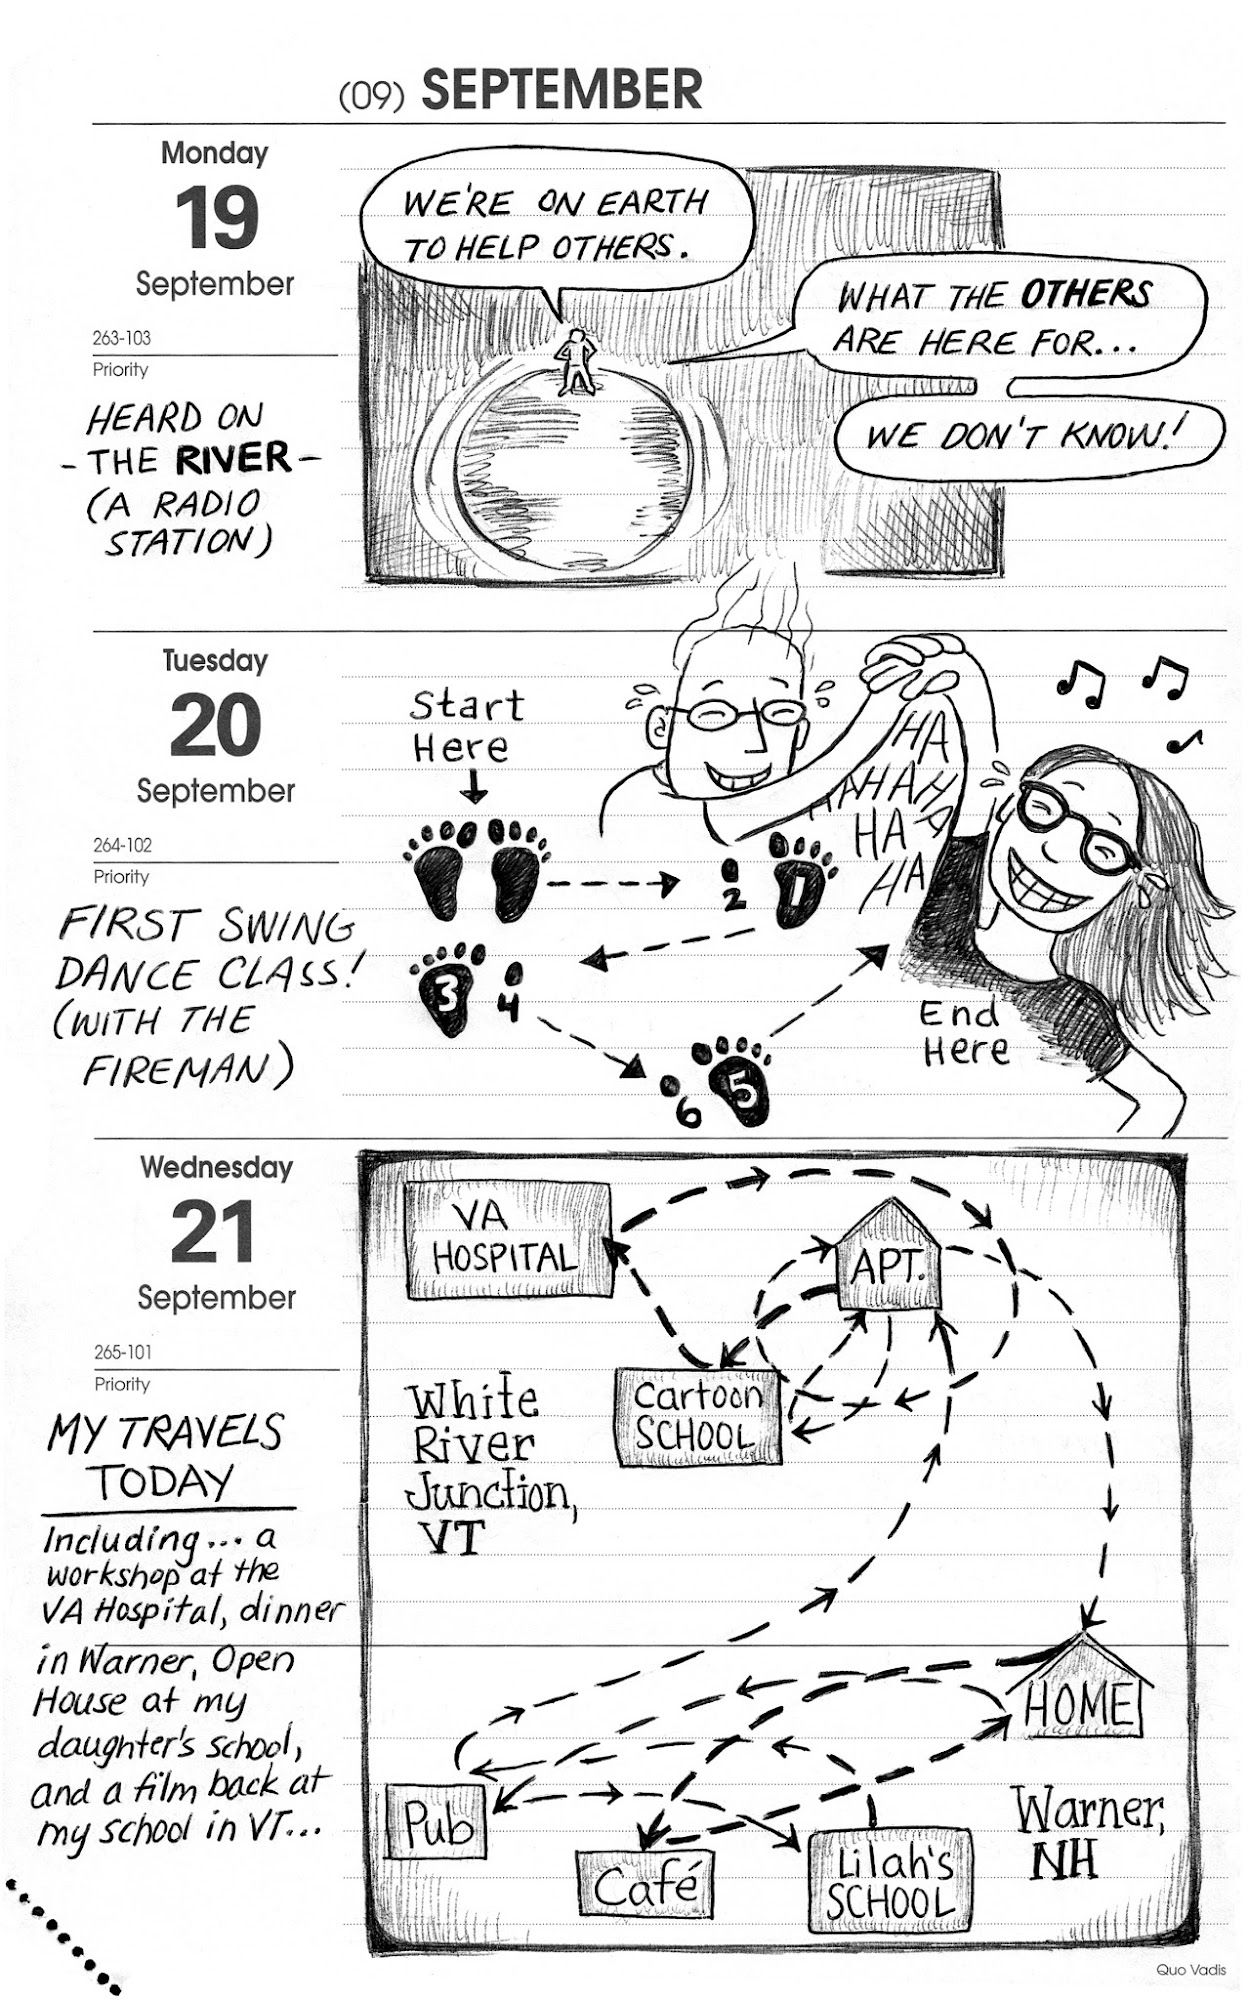 (09) SEPTEMBER
Monday
19
September
263-103
Priority
HEARD ON
- THE RIVER -
(A RADIO
STATION)
WE'RE ON EARTH
TO HELP OTHERS.
WHAT THE OTHERS
ARE HERE FOR...
WE DON'T KNOW!
Tuesday
20
September
264-102
Priority
FIRST SWING
DANCE CLASS!
(WITH THE
FIREMAN)
Start
Here
HA
HAHAHA
HA HA
HA
2
1
3
4
5
6
End
Here
Wednesday
21
September
265-101
Priority
MY TRAVELS
TODAY
Including... a
workshop at the
VA Hospital, dinner
in Warner, Open
House at my
daughter's school,
and a film back at
my school in VT...
VA
HOSPITAL
APT.
Cartoon
SCHOOL
White
River
Junction,
VT
HOME
Pub
Café
Lilah's
SCHOOL
Warner,
NH
Quo Vadis